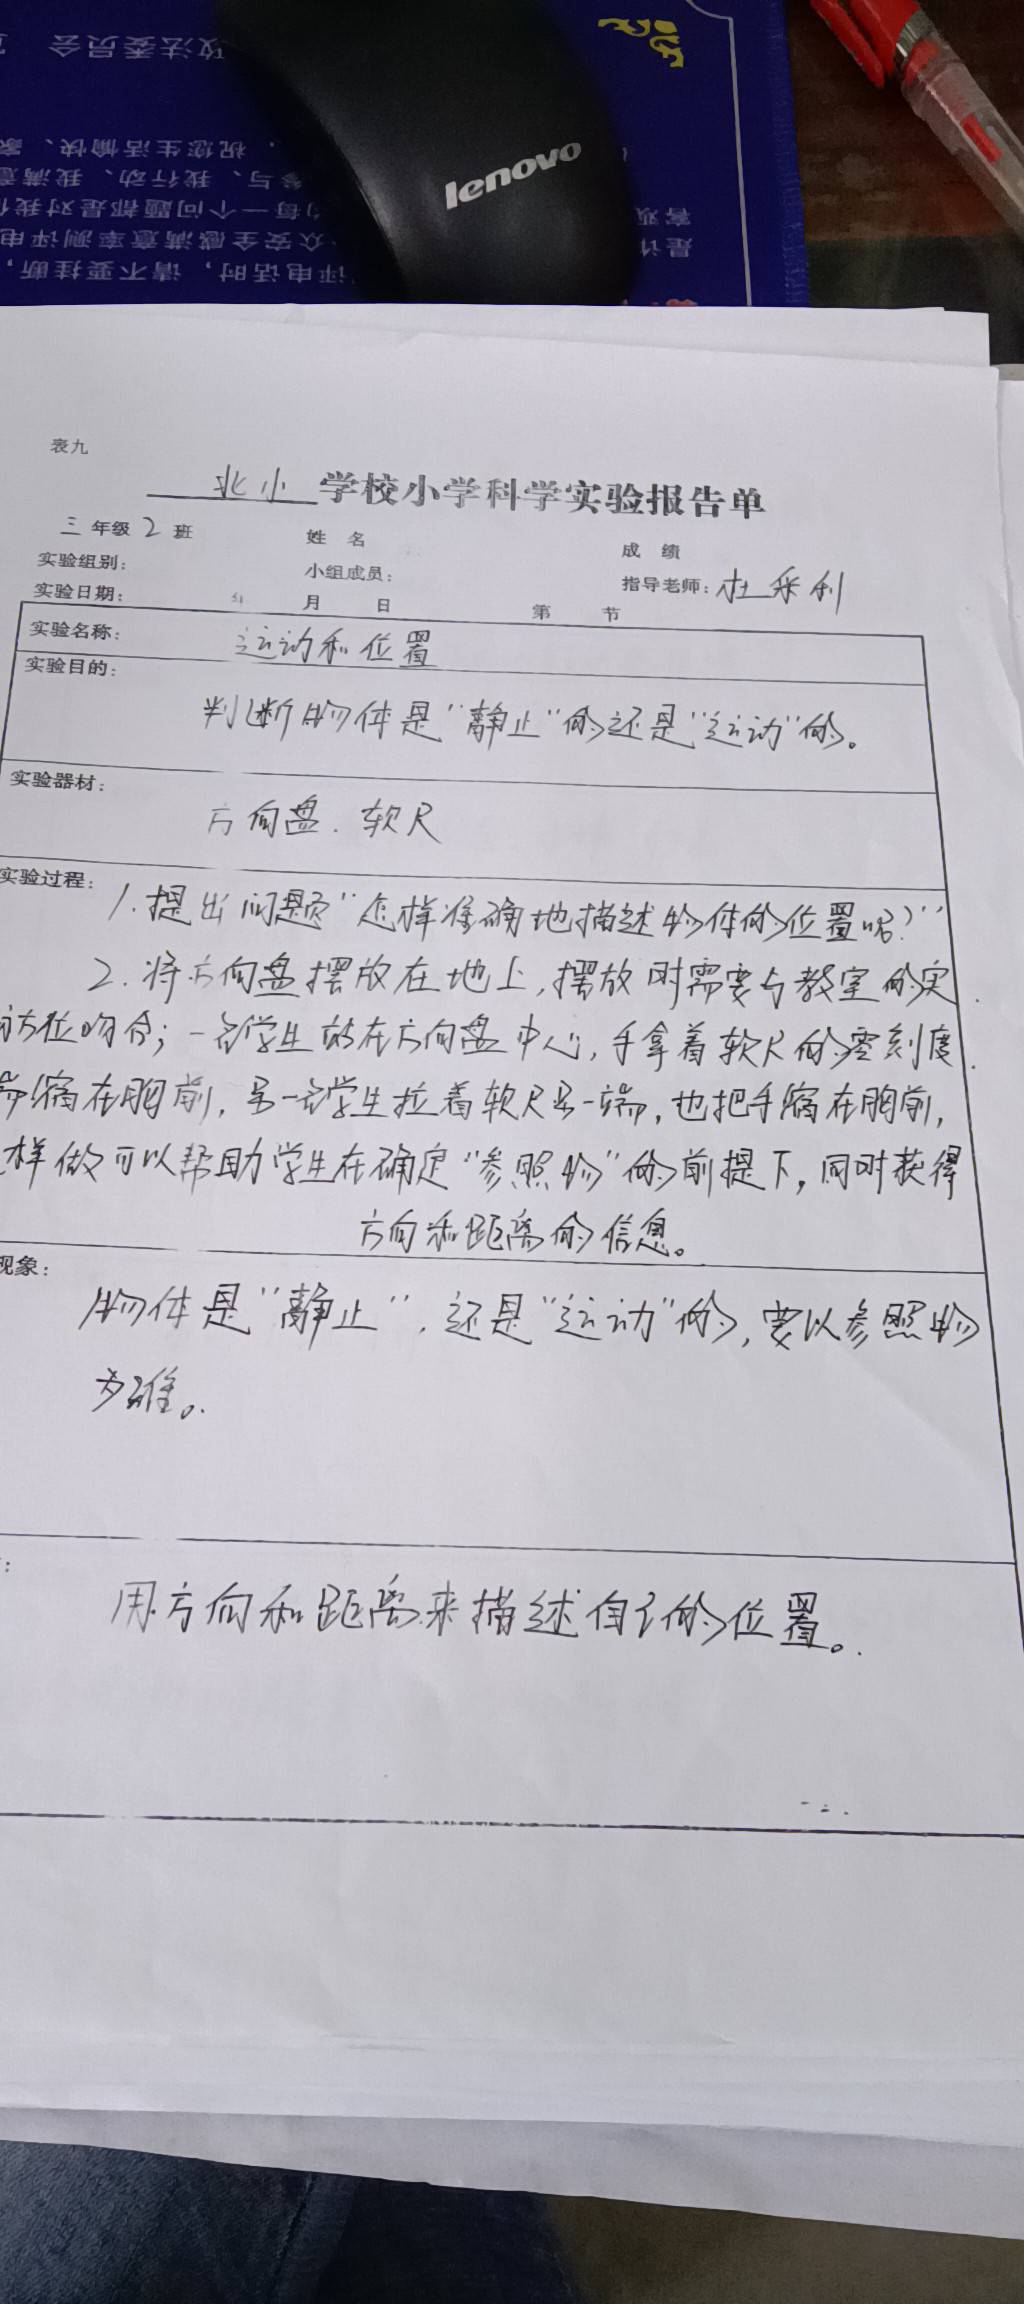 政法委员会
，祝您生活愉快、家
参与、我行动、我满意
的每一个问题都是对我们
众安全感满意率测评电
评电话时，请不要挂断，
lenovo
表九
北小学校小学科学实验报告单
三年级2班 姓名 成绩
实验组别： 小组成员： 指导老师：杜乐利
实验日期： 年 月 日 第 节
实验名称： 运动和位置
实验目的：
判断物体是“静止“的还是“运动“的。
实验器材：
方向盘. 软尺
实验过程： 1.提出问题“怎样准确地描述物体的位置呢？”
2.将方向盘摆放在地上，摆放时需要与教室的实
方位吻合；一名学生站在方向盘中心，手拿着软尺的零刻度
缩在胸前，另一名学生拉着软尺另一端，也把手缩在胸前，
样做可以帮助学生在确定“参照物”的前提下，同时获得
方向和距离的信息。
现象：
物体是“静止“，还是“运动“的，要以参照物
为准。
用方向和距离来描述自己的位置。